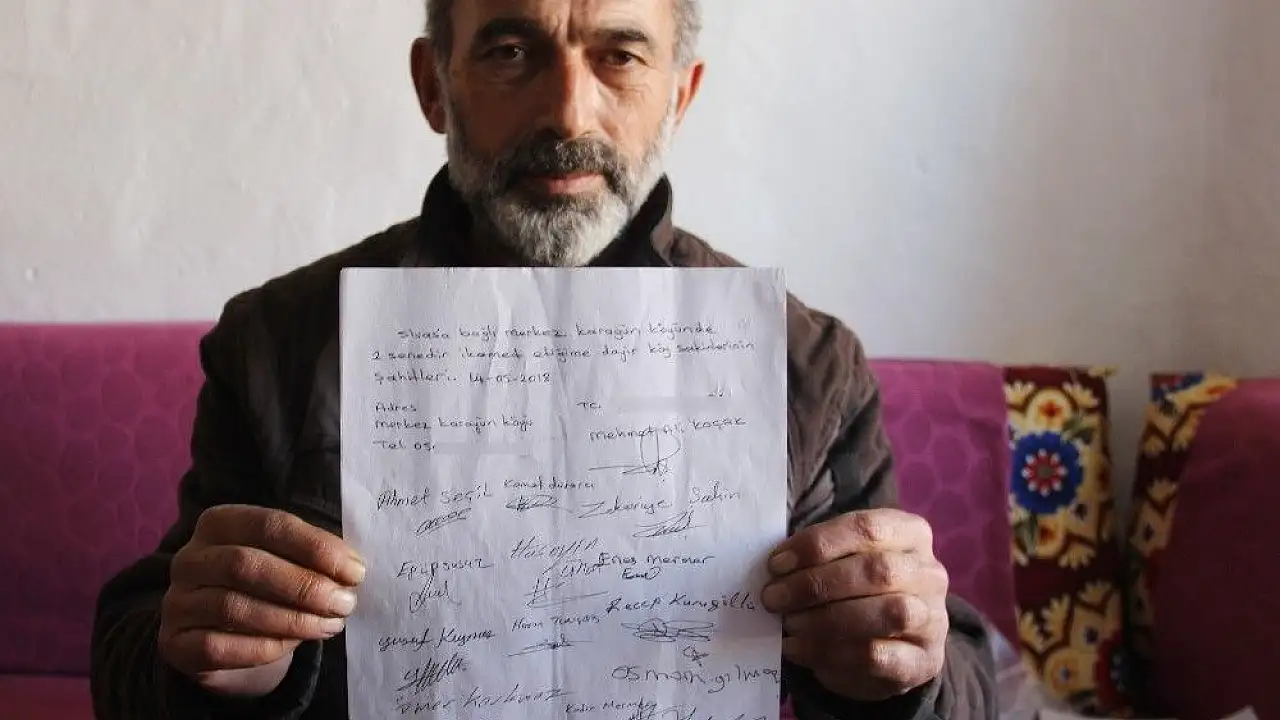 Sivasa bağlı merkez karagün köyünde
2 senedir ikamed etiğime dair köy sakinlerinin
şahitleri. 14-05-2018
Adres TC.
merkez karagün köyü
Tel 05. mehmet Ali koçak
Ahmet Seçil Kamet Zekeriye Şahin
Eyüp susuz Hüseyin
Enes mermer
Recep
Yusuf
osman yılmaz
ömer korkmaz Kadir